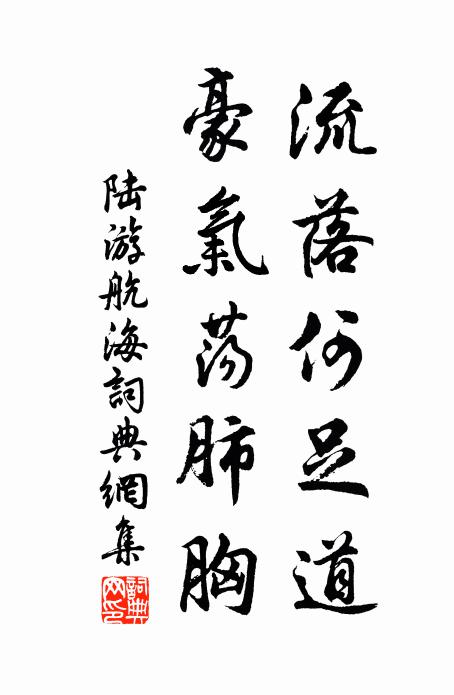 流落何足道
豪氣蕩肺胸
陆游航海詞典網集
詞典网印